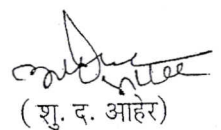 ( शु. द. आहेर)